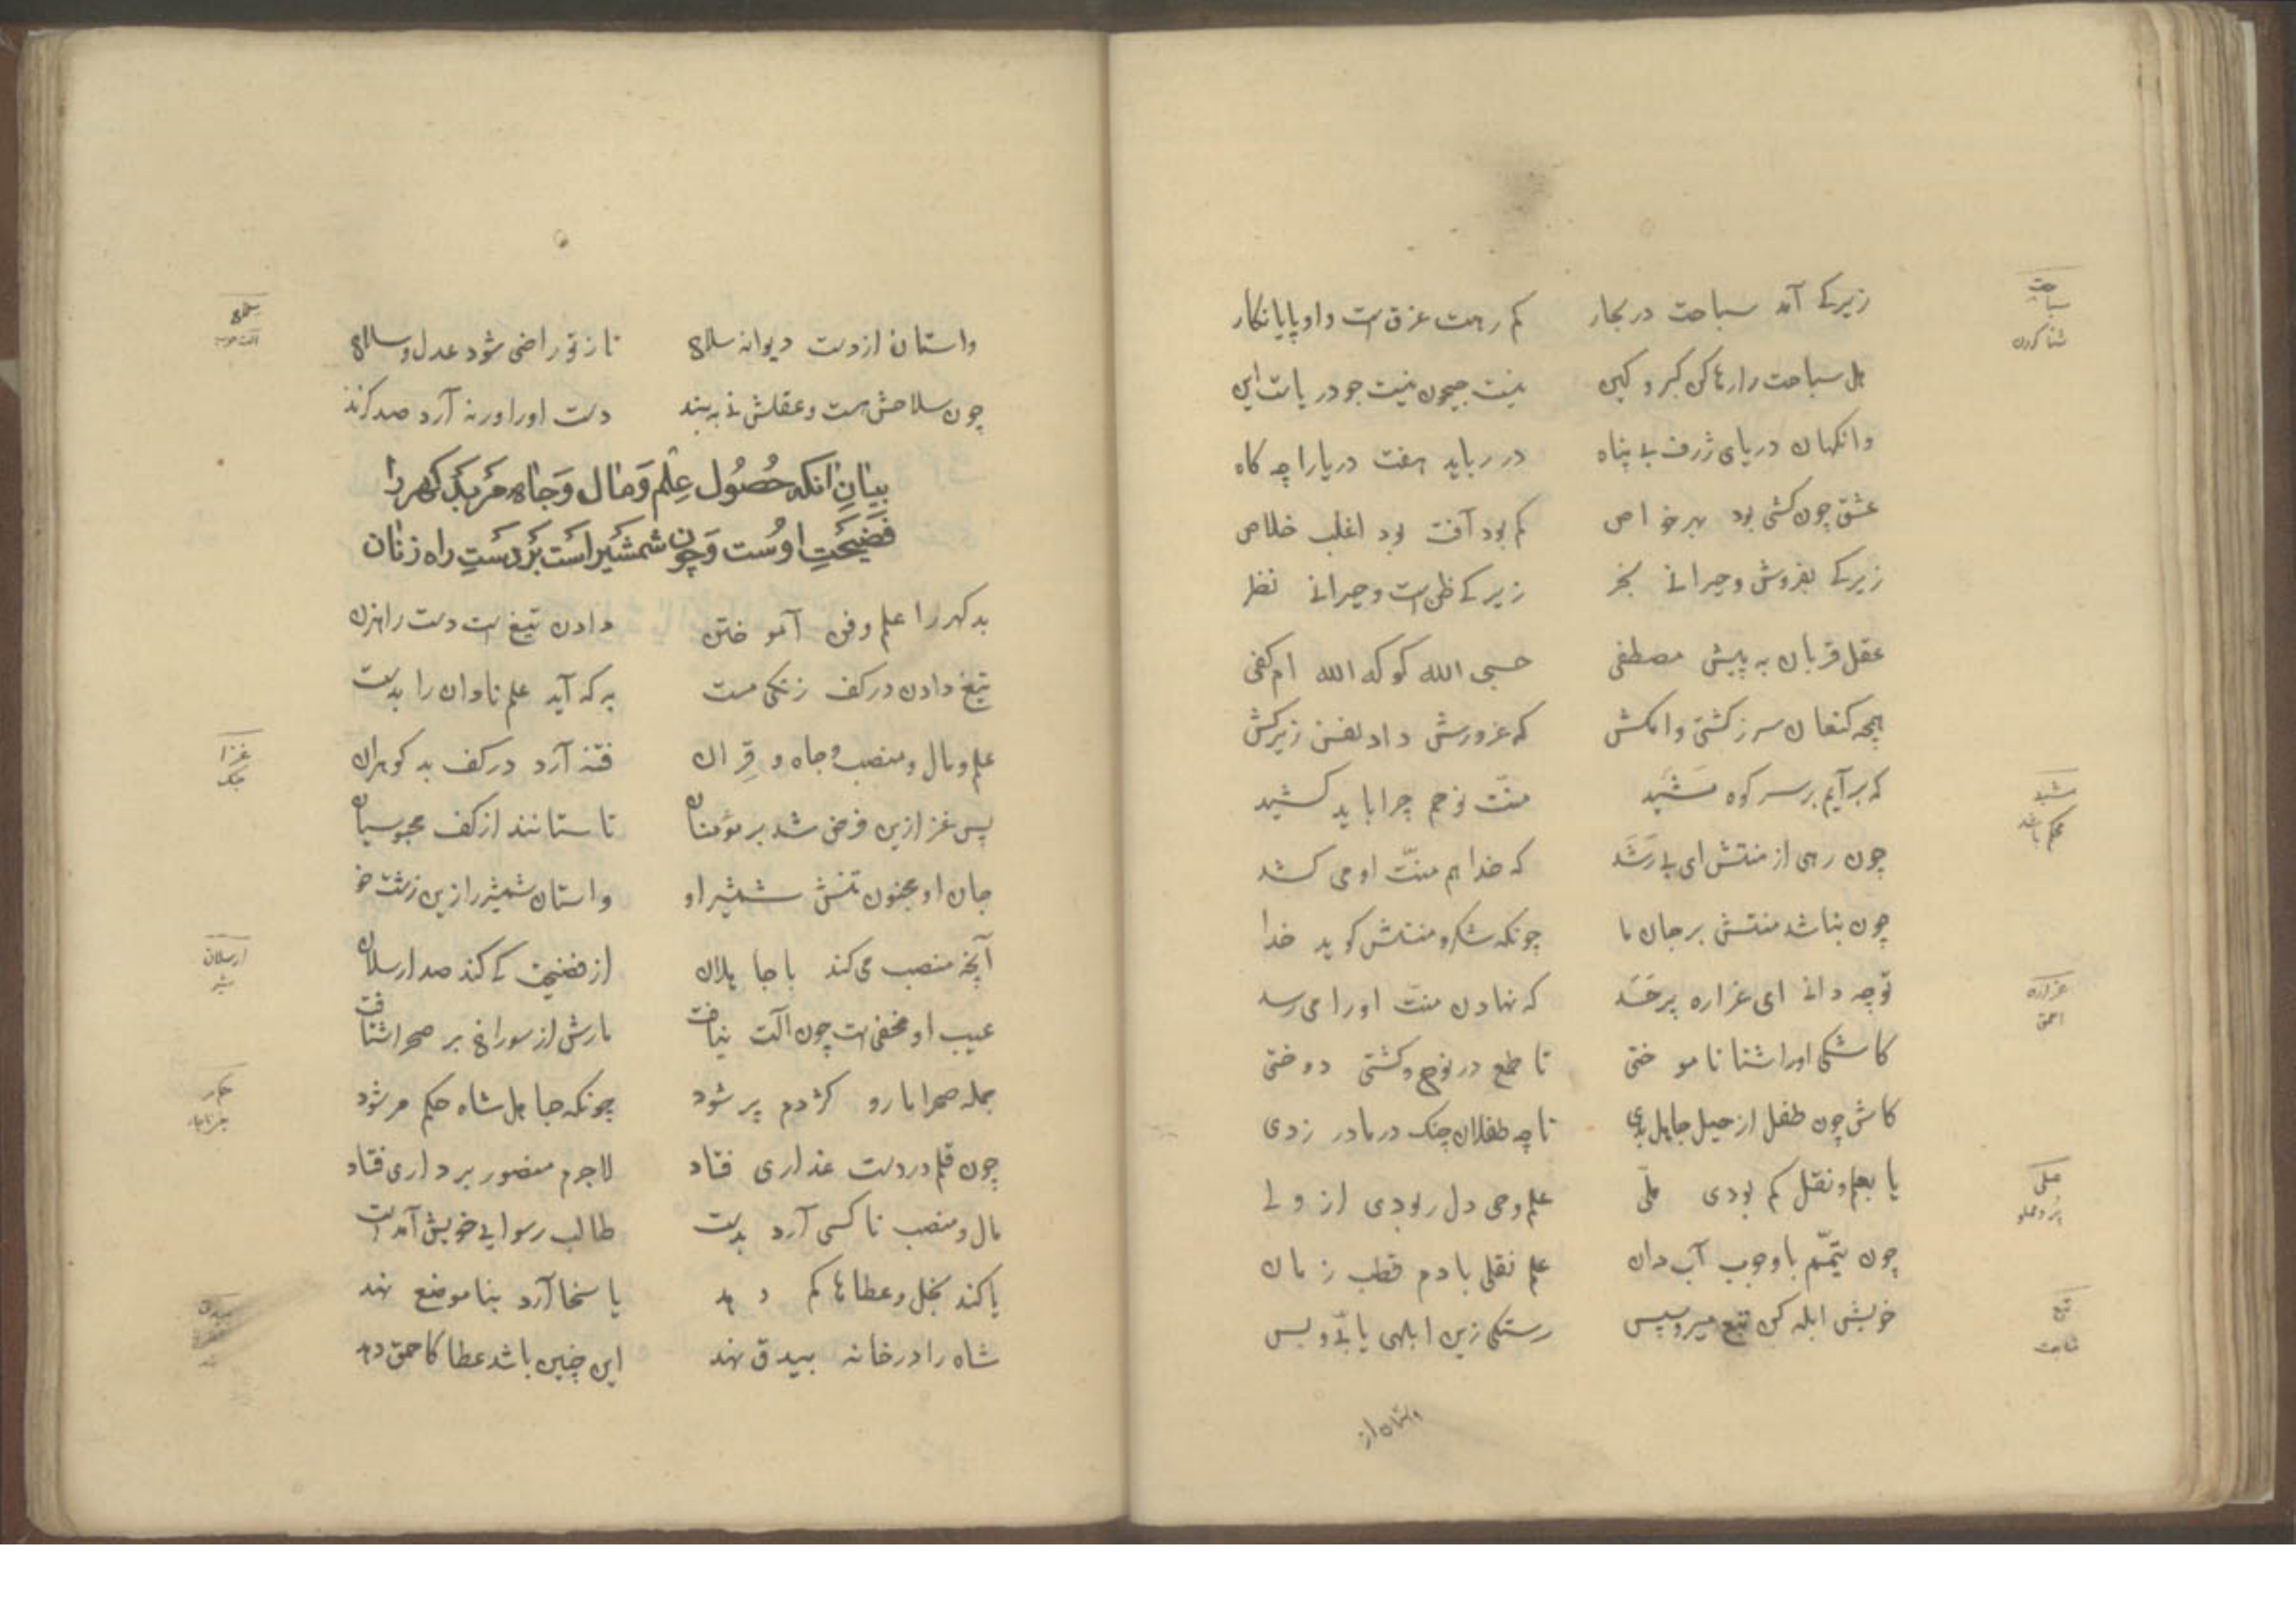 زیرکی آمد سباحت در بحار کم رهست غرق است و او پایانکار
هل سباحت را رها کن کبر و کین نیست جیحون نیست جو دریاست این
وانکهان دریای ژرف بی پناه در رباید هفت دریا را چه کاه
عشق چون کشتی بود بهر خواص کم بود آفت بود اغلب خلاص
زیرکی بفروش و حیرانی بخر زیرکی ظن است و حیرانی نظر
عقل قربان به پیش مصطفی حسبی الله کو که الله ام کفی
همچه کنعان سر ز کشتی وامکش که غرورش داد نفس زیرکش
که برآیم بر سر کوه مَشَید منّت نوحم چرا باید کشید
چون رهی از منتش ای بی رَشَد که خدا هم منّت او می کشد
چون نباشد منتش بر جان ما چونکه شکر و منتش کوید خدا
تو چه دانی ای غراره پر حَسَد که نهادن منّت او را می رسد
کاشکی او اشنا نامو ختی تا طمع در نوح و کشتی دوختی
کاش چون طفل از حیل جاهل بدی تا چه طفلان چنک در مادر زدی
یا بعلم و نقل کم بودی ملّی علم وحی دل ربودی از ولی
چون تیمّم با وجوب آب دان علم نقلی با دم قطب زمان
خویش ابله کن تبع میرو سپس رستکی زین ابلهی یابی و بس
واستان از
سباحت
شنا کردن
مشید
محکم
غراره
احمق
ملی
تبع
واستان از دست دیوانه سلاح تا ز تو راضی شود عدل و سلاح
چون سلاحش هست و عقلش نی به بند دست او را ورنه آرد صد کزند
بیان انکه حصُول علِم وَمال وَجاه مربدکهررا
فضیحَتِ اوست وَچون شمشیراست بردستِ راه زنان
بدکهر را علم و فن آموختن دادن تیغ است دست راهزن
تیغ دادن در کف زنکی مست به که آید علم نادان را بدست
علم و مال و منصب و جاه و قِران فتنه آرد در کف بدکوهران
پس غزا زین فرض شد بر مؤمنان تا ستانند از کف مجوسیان
جان او مجنون تنش شمشیر او واستان شمشیر را زین زشت خو
آنچه منصب می کند با جاهلان از فضیحت کی کند صد ارسلان
عیب او مخفی است چون الت نیافت مارش از سوراخ بر صحرا شتافت
جمله صحرا مار و کژدم پر شود چونکه جاهل شاه حکم مر شود
چون قلم در دست غداری فتاد لاجرم منصور برداری فتاد
مال و منصب ناکسی آرد بدست طالب رسوایی خویش آمدست
یا کند بخل و عطاها کم دهد یا سخا آرد بناموضع نهد
شاه را در خانه بیدق نهد این چنین باشد عطا کاحمق دهد
سلاح
غزا
جنک
ارسلان
شیر
بیدق